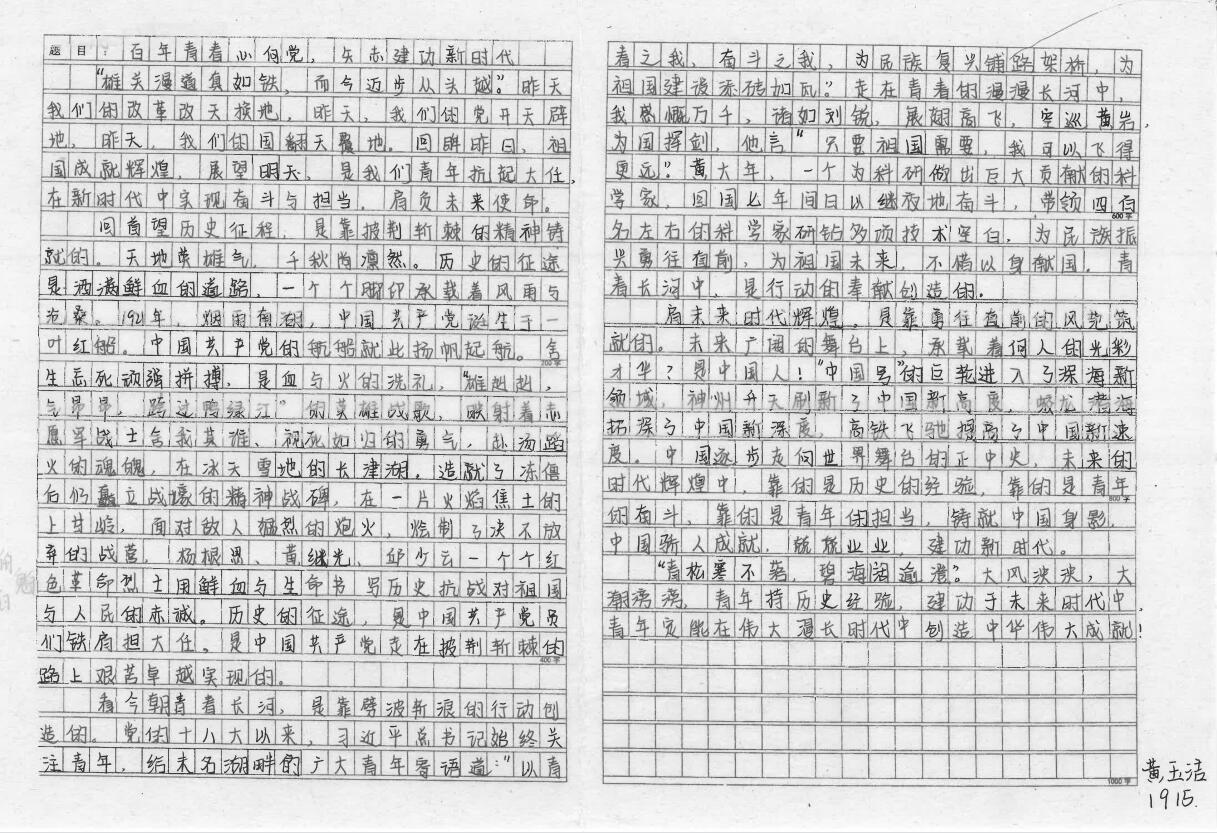 题目：百年青春心向党，矢志建功新时代
“雄关漫道真如铁，而今迈步从头越。”昨天
我们的改革改天换地，昨天，我们的党开天辟
地，昨天，我们的国翻天覆地。回眸昨日，祖
国成就辉煌，展望明天，是我们青年抗起大任，
在新时代中实现奋斗与担当，肩负未来使命。
回首望历史征程，是靠披荆斩棘的精神铸
就的。天地英雄气，千秋尚凛然。历史的征途
是洒满鲜血的道路，一个个脚印承载着风雨与
沧桑。1921年，烟雨南湖，中国共产党诞生于一
叶红船。中国共产党的航船就此扬帆起航。舍
200字
生忘死顽强拼搏，是血与火的洗礼，“雄赳赳，
气昂昂，跨过鸭绿江”的英雄战歌，映射着志
愿军战士舍我其谁、视死如归的勇气，赴汤蹈
火的魂魄，在冰天雪地的长津湖，造就了冻僵
后仍矗立战壕的精神战碑，在一片火焰焦土的
上甘岭，面对敌人猛烈的炮火，绘制了决不放
弃的战营，杨根思、黄继光、邱少云一个个红
色革命烈士用鲜血与生命书写历史抗战对祖国
与人民的赤诚。历史的征途，是中国共产党员
们铁肩担大任，是中国共产党走在披荆斩棘的
400字
路上艰苦卓越实现的。
看今朝青春长河，是靠劈波斩浪的行动创
造的。党的十八大以来，习近平总书记始终关
注青年，给未名湖畔的广大青年寄语道：“以青
春之我，奋斗之我，为民族复兴铺路架桥，为
祖国建设添砖加瓦。”走在青春的漫漫长河中，
我感慨万千，诸如刘锐，展翅高飞，空巡黄岩，
为国挥剑，他言“只要祖国需要，我可以飞得
更远。”黄大年，一个为科研做出巨大贡献的科
学家，回国七年间日以继夜地奋斗，带领四百
600字
名左右的科学家研钻多项技术空白，为民族振
兴勇往直前，为祖国未来，不惜以身献国。青
春长河中，是行动的奉献创造的。
居未来时代辉煌，是靠勇往直前的风范筑
就的。未来广阔的舞台上，承载着何人的光彩
才华？是中国人！“中国号”的巨轮进入了深海新
领域，神州升天刷新了中国新高度，蛟龙潜海
拓深了中国新深度，高铁飞驰提高了中国新速
度。中国逐步走向世界舞台的正中央，未来的
时代辉煌中，靠的是历史的经验，靠的是青年
800字
的奋斗，靠的是青年的担当，铸就中国身影，
中国骄人成就，兢兢业业，建功新时代。
“青松寒不落，碧海阔逾澄。”大风泱泱，大
潮滂滂，青年持历史经验，建功于未来时代中，
青年定能在伟大漫长时代中创造中华伟大成就！
1000字
黄玉洁
1915.